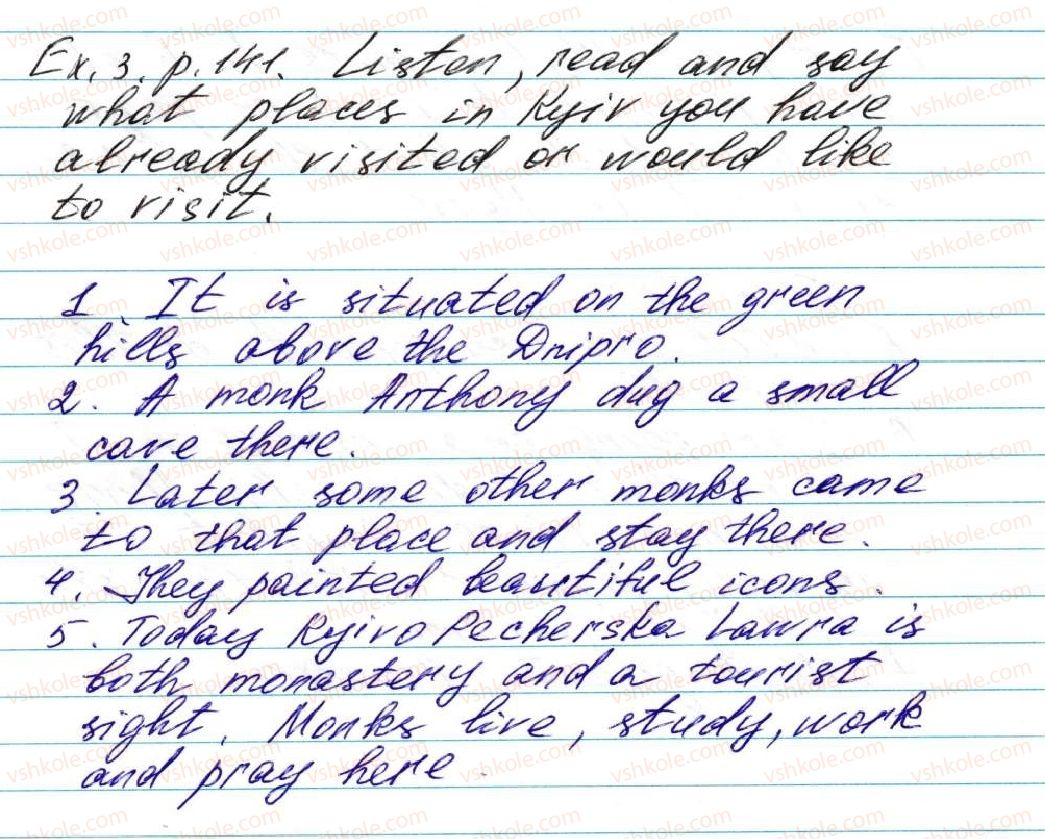 Ex. 3. p. 141. Listen, read and say
what places in Kyiv you have
already visited or would like
to visit.
1. It is situated on the green
hills above the Dnipro.
2. A monk Anthony dug a small
cave there.
3. Later some other monks came
to that place and stay there.
4. They painted beautiful icons.
5. Today Kyivo Pecherska Lawra is
both monastery and a tourist
sight. Monks live, study, work
and pray here